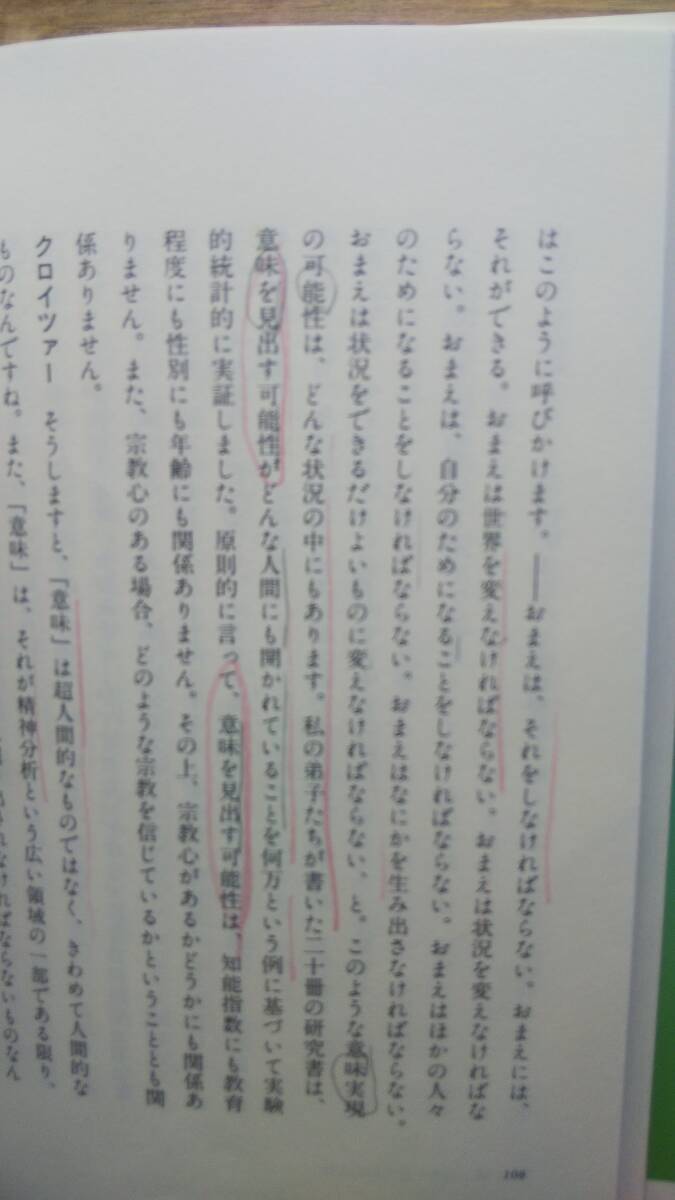 はこのように呼びかけます。――おまえは、それをしなければならない。おまえには、
それができる。おまえは世界を変えなければならない。おまえは状況を変えなければな
らない。おまえは、自分のためになることをしなければならない。おまえはほかの人々
のためになることをしなければならない。おまえはなにかを生み出さなければならない。
おまえは状況をできるだけよいものに変えなければならない、と。このような意味実現
の可能性は、どんな状況の中にもあります。私の弟子たちが書いた二十冊の研究書は、
意味を見出す可能性がどんな人間にも開かれていることを何万という例に基づいて実験
的統計的に実証しました。原則的に言って、意味を見出す可能性は、知能指数にも教育
程度にも性別にも年齢にも関係ありません。その上、宗教心があるかどうかにも関係あ
りません。また、宗教心のある場合、どのような宗教を信じているかということとも関
係ありません。
クロイツァー そうしますと、「意味」は超人間的なものではなく、きわめて人間的な
ものなんですね。また、「意味」は、それが精神分析という広い領域の一部である限り、
なければならないものなん
106